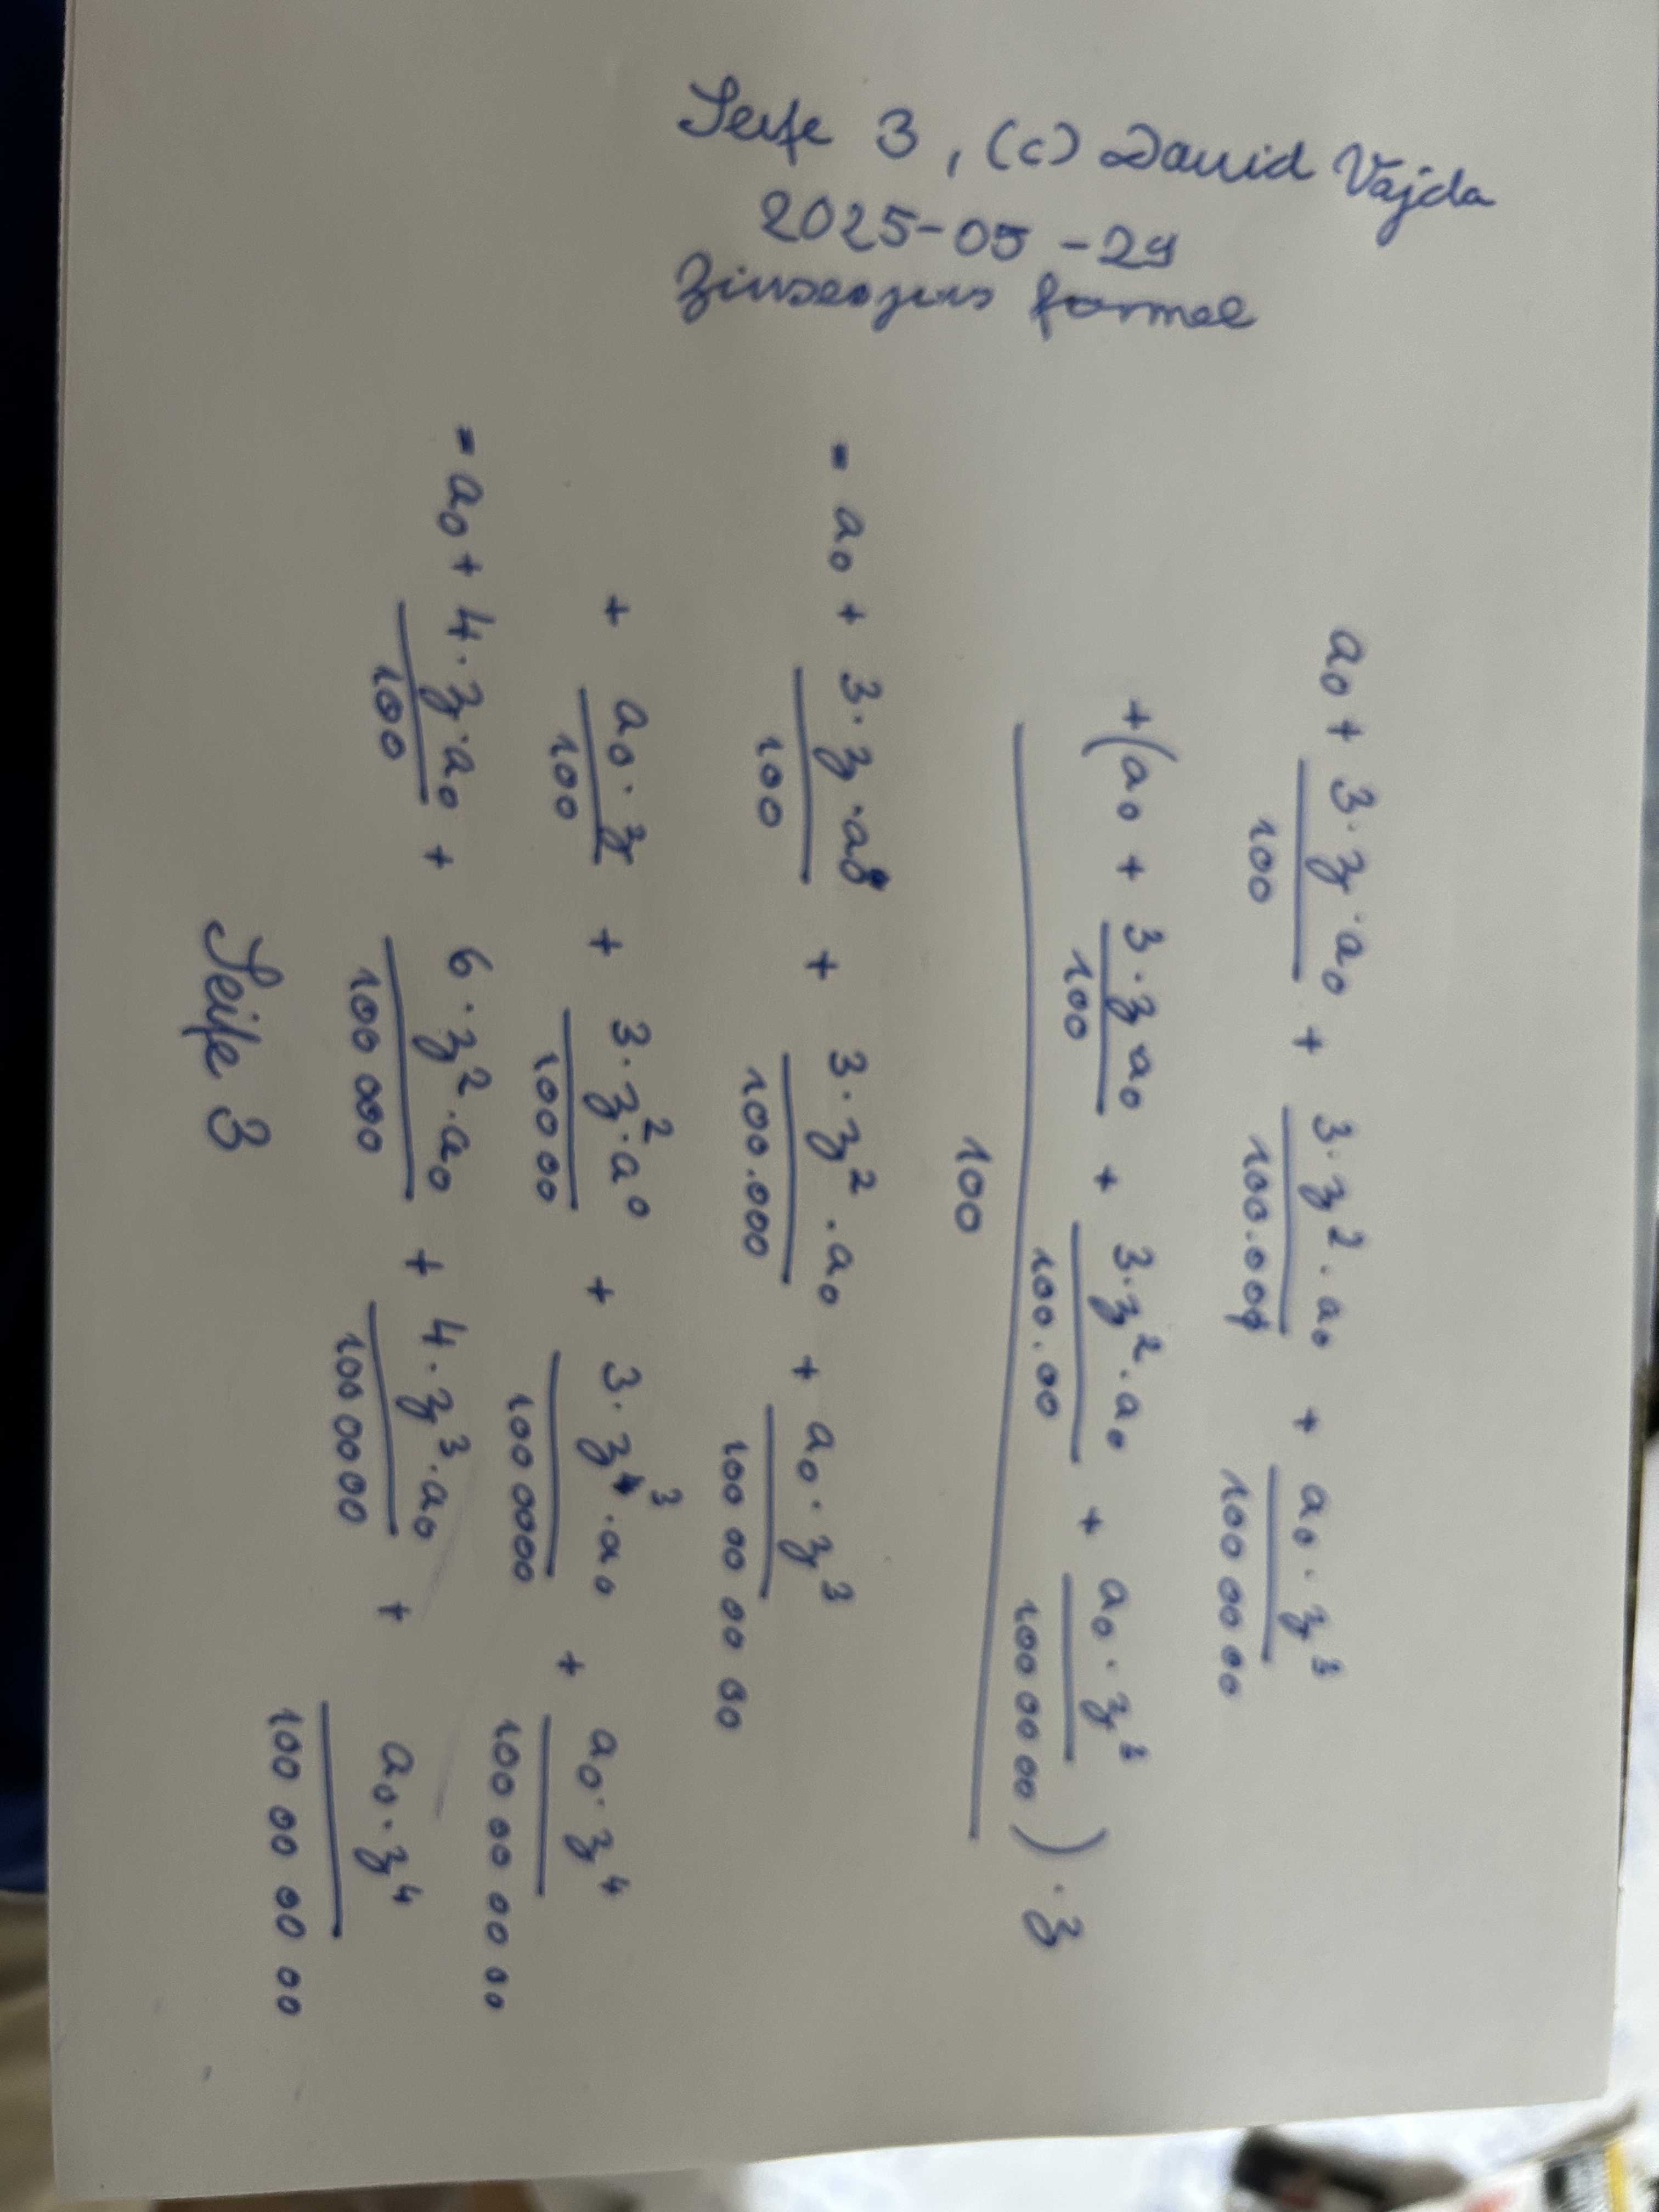 Seite 3, (c) David Vajda
2025-05-29
Zinseszins formel
a₀ + 3·z·a₀/100 + 3·z²·a₀/100.000 + a₀·z³/100 00 00
+(a₀ + 3·z·a₀/100 + 3·z²·a₀/100.00 + a₀·z³/100 00 00)·z
100
= a₀ + 3·z·a₀/100 + 3·z²·a₀/100.000 + a₀·z³/100 00 00 00
+ a₀·z/100 + 3·z²·a₀/100 00 + 3·z³·a₀/100 0000 + a₀·z⁴/100 00 00 00
= a₀ + 4·z·a₀/100 + 6·z²·a₀/100 000 + 4·z³·a₀/100 0000 + a₀·z⁴/100 00 00 00
Seite 3